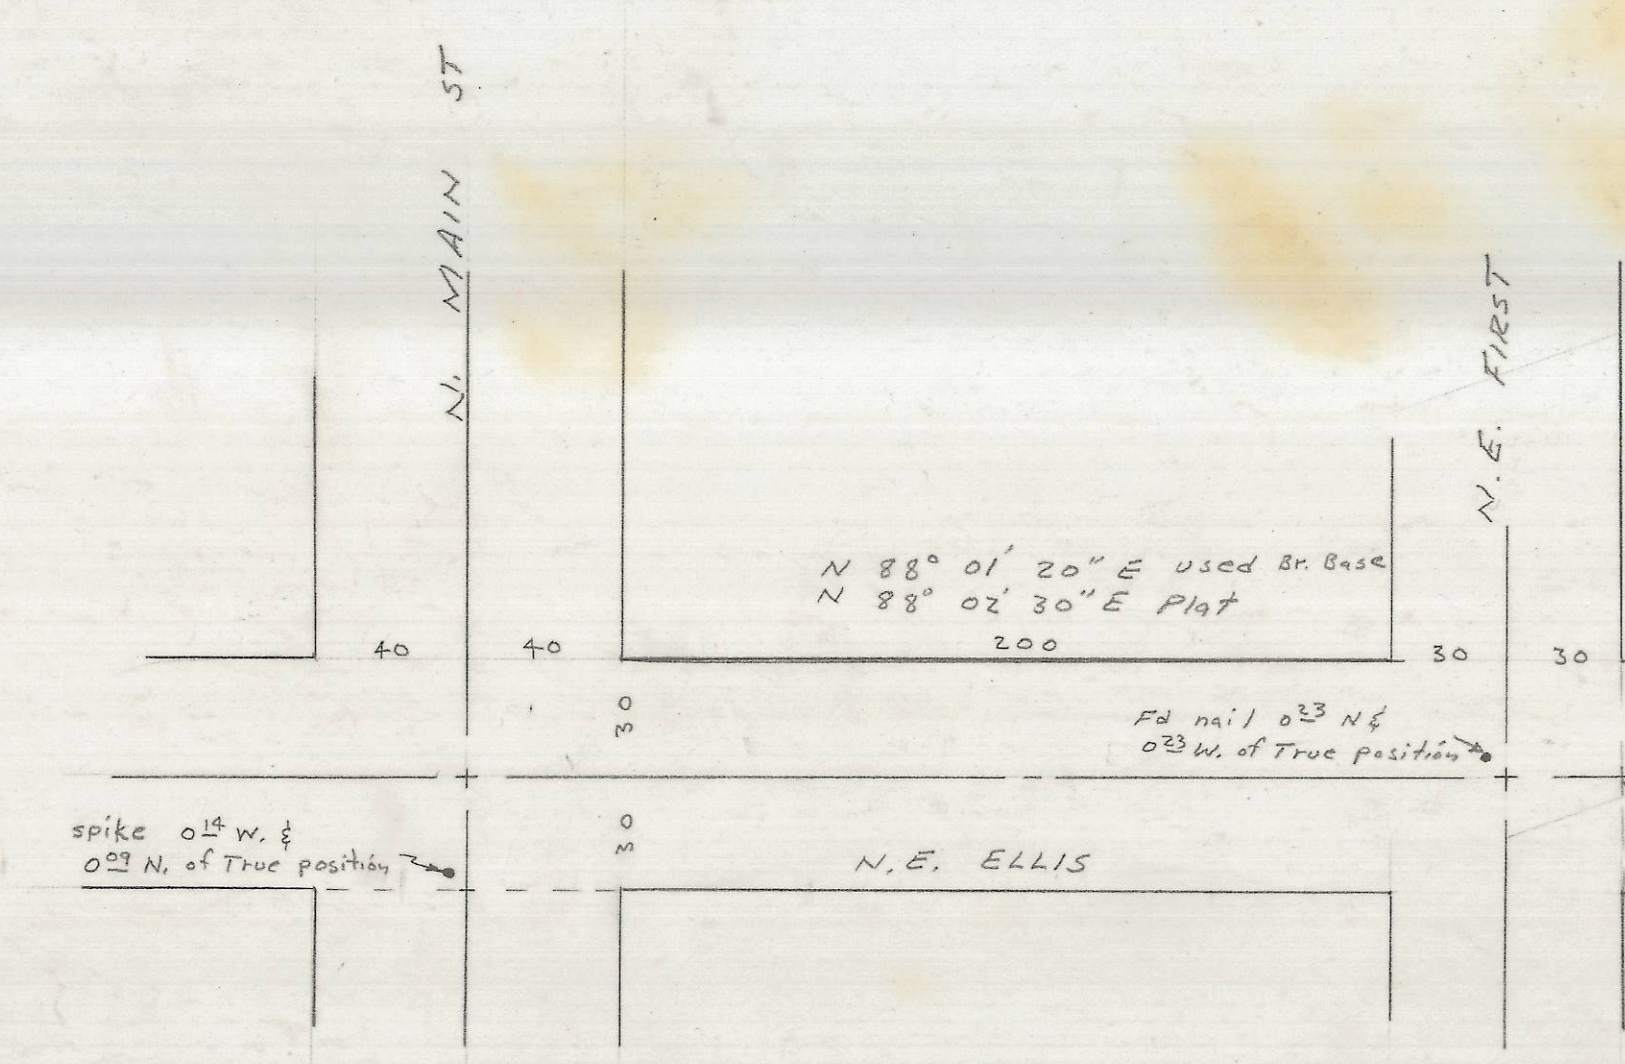 N. MAIN ST
N.E. FIRST
N 88° 01' 20" E used Br. Base
N 88° 02' 30" E Plat
200
40
40
30
30
30
Fd nail 0 23 N &
0 23 W. of True position
spike 0 14 W. &
0 09 N. of True position
30
N.E. ELLIS